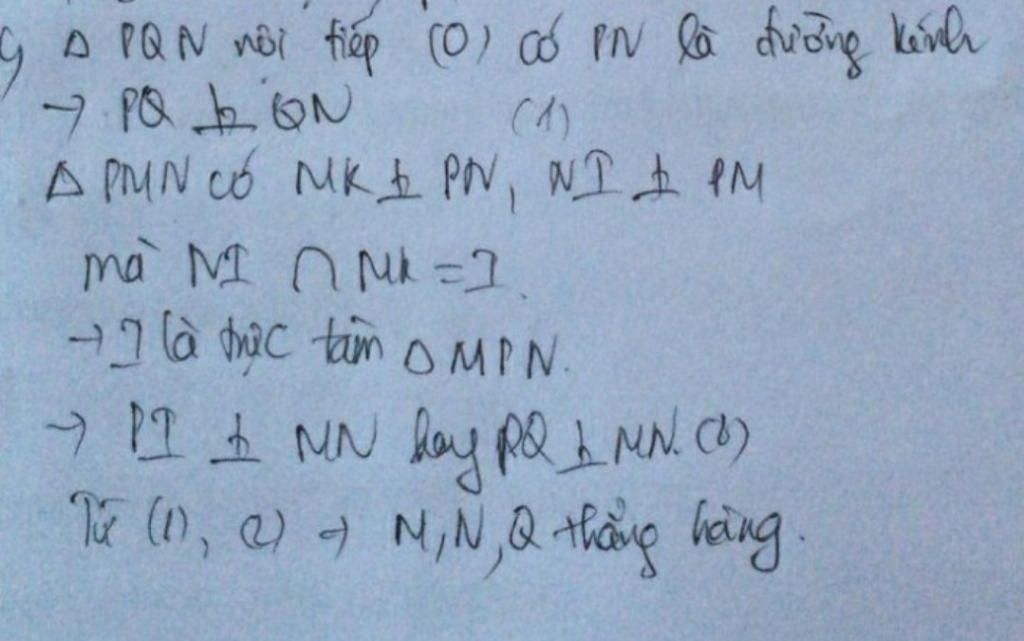 c) Δ PQN nội tiếp (O) có PN là đường kính
→ PQ ⊥ QN (1)
Δ PMN có MK ⊥ PN, NI ⊥ PM
mà NI ∩ MK = I.
→ I là trực tâm Δ MPN.
→ PI ⊥ MN hay PQ ⊥ MN. (2)
Từ (1), (2) → M, N, Q thẳng hàng.